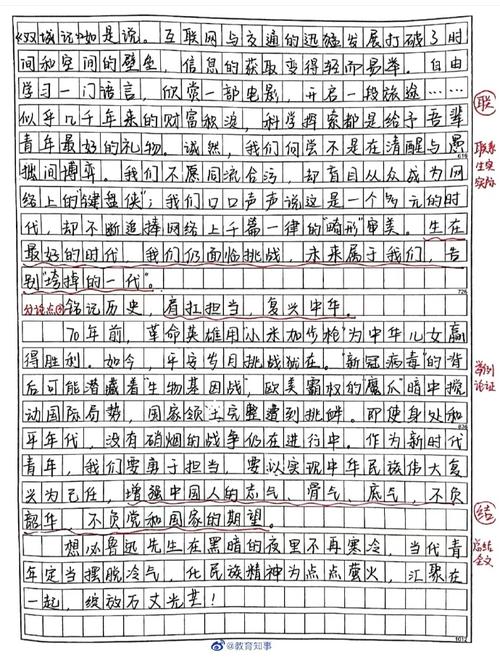 《双城记》如是说。互联网与交通的迅猛发展打破了时
间和空间的壁垒，信息的获取变得轻而易举。自由
学习一门语言，欣赏一部电影，开启一段旅途……
似乎几千年来的财富积淀，科学探索都是给予吾辈
青年最好的礼物。诚然，我们何尝不是在清醒与愚
拙间博弈。我们不愿同流合污，却盲目从众成为网
络上的"键盘侠"；我们口口声声说这是一个多元的时
代，却不断追捧网络上千篇一律的"畸形"审美。生在
最好的时代，我们仍面临挑战，未来属于我们，告
别"垮掉的一代"。
分论点③ 铭记历史，肩扛担当，复兴中华。
70年前，革命英雄用"小米加步枪"为中华儿女赢
得胜利。如今，平安岁月挑战犹在。"新冠病毒"的背
后可能潜藏着"生物基因战"，欧美霸权的"魔爪"暗中搅
动国际局势，国家领土完整遭到挑衅。即使身处和
平年代，没有硝烟的战争仍在进行中。作为新时代
青年，我们要勇于担当，要以实现中华民族伟大复
兴为己任，增强中国人的志气、骨气、底气，不负
韶华，不负党和国家的期望。
想必鲁迅先生在黑暗的夜里不再寒冷，当代青
年定当摆脱冷气，化民族精神为点点萤火，汇聚在
一起，绽放万丈光芒！
联
联系
实际
举例
论证
结
总结
全文
@教育知事